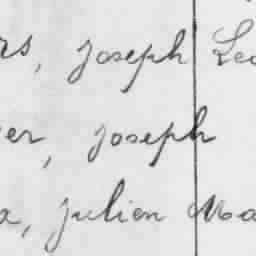 rs, Joseph Leo
er, Joseph
a, Julien Ma